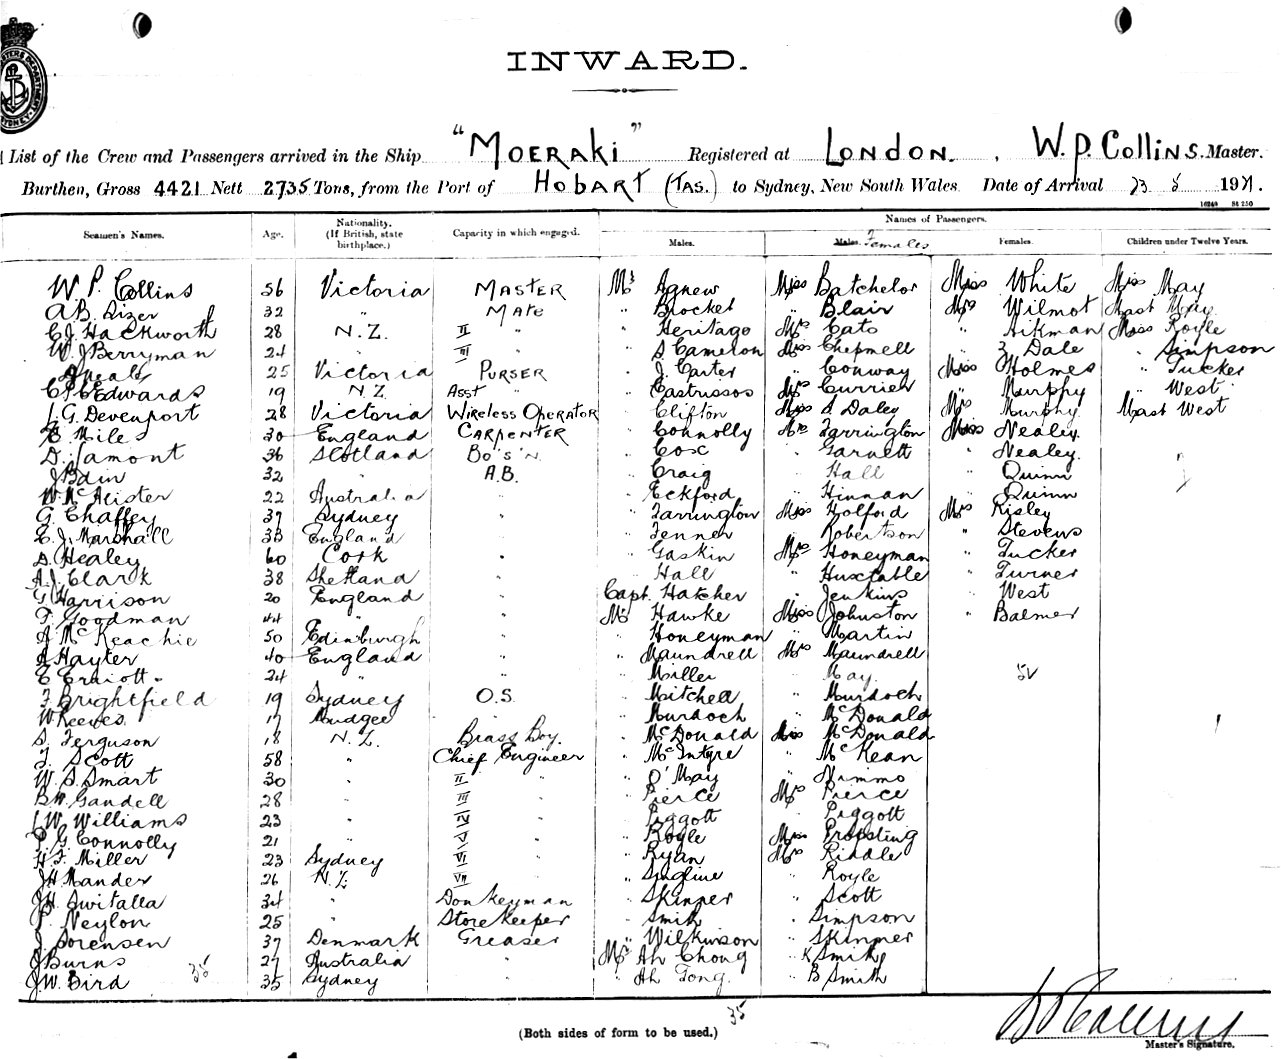 INWARD.
List of the Crew and Passengers arrived in the Ship "MOERAKI" Registered at LONDON. , W. P. COLLINS. Master.
Burthen, Gross 4421 Nett 2735 Tons, from the Port of HOBART (TAS.) to Sydney, New South Wales Date of Arrival 23 5 1921.
16248 St 250
Seamen's Names. Age. Nationality. (If British, state birthplace.) Capacity in which engaged. Names of Passengers.
Males. Males. Females Females. Children under Twelve Years.
W P. Collins 56 Victoria MASTER Mr Agnew Miss Batchelor Miss White Miss May
A.B. Rizer 32 " MATE " Brocket " Blair Mrs Wilmot Mast May
C.J. Hackworth 28 N.Z. II " " Heritage Mrs Cato " Aikman Miss Royle
W. J Berryman 24 " III " " S Cameron Miss Chepmell " Dale " Simpson
25 Victoria PURSER " J. Carter " Conway Miss Holmes " Tucker
Edwards 19 N.Z. Asst " Mrs Currier " Murphy " West
G. Devenport 28 Victoria Wireless Operator " Clifton Miss Daley Mrs Murphy Mast West
Miles 30 England CARPENTER " Connolly Mrs Farrington Miss Nealey
D. Lamont 36 Scotland Bo's'n. " Cox " Garnett " Nealey
J Bain 32 " A.B. " Craig " Hall " Quinn
W. McAlister 22 Australia " " Eckford " Hinnan " Quinn
G. Chaffey 39 Sydney " " Farrington Miss Holford Mrs Risley
E. J. Marshall 33 England " " Fenner " Robertson " Stevens
Healey 60 Cork " " Gaskin Mrs Honeyman " Tucker
A.J. Clark 38 Shetland " " Hall " Huxtable " Turner
G Harrison 20 England " Capt. Hatcher " Jenkins " West
F. Goodman 44 " " Mr Hawke Miss Johnston " Balmer
A McKeachie 50 Edinburgh " " Honeyman " Martin
A Hayter 40 England " " Maundrell Mrs Maundrell
E 24 " " " Miller " May.
F Brightfield 19 Sydney O.S. " Mitchell " Murdoch
W Reeves 17 Mudgee " " Murdoch " McDonald
S. Ferguson 18 N.Z. Brass Boy. " McDonald Miss McDonald
Scott 58 " Chief Engineer " McIntyre " McKean
W. S. Smart 30 " II " " O'May " Nimmo
B.H. Gandell 28 " III " " Pierce Mrs Pierce
W. Williams 23 " IV " " Piggott " Piggott
P. G Connolly 21 " V " " Royle Miss Propsting
H. F. Miller 23 Sydney VI " " Ryan Mrs Riddle
J.H. Mander 26 N.Z. VII " " Singline " Royle
J.H. Switalla 34 " Donkeyman " Skinner " Scott
P. Neylon 25 " Storekeeper " Smith " Simpson
J. Sorensen 37 Denmark Greaser " Wilkinson " Skinner
J Burns 27 Australia " Mr Ah Chong " K Smith
J.W. Bird 35 35 Sydney " " Ah Tong. " B Smith
35
(Both sides of form to be used.)
Master's Signature.